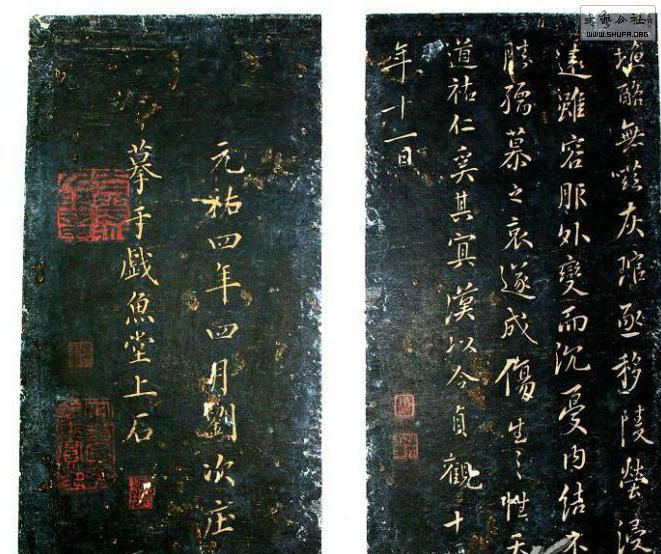 書藝公社
WWW.SHUFA.ORG
塩酪無嗞灰琯亟移陵塋浸
遠雖容服外變而沉憂内結不
勝孺慕之哀遂成傷生之性天
道祐仁奚其冥漠以今貞觀十
年十一月
元祐四年四月劉次庄
摹手戲魚堂上石